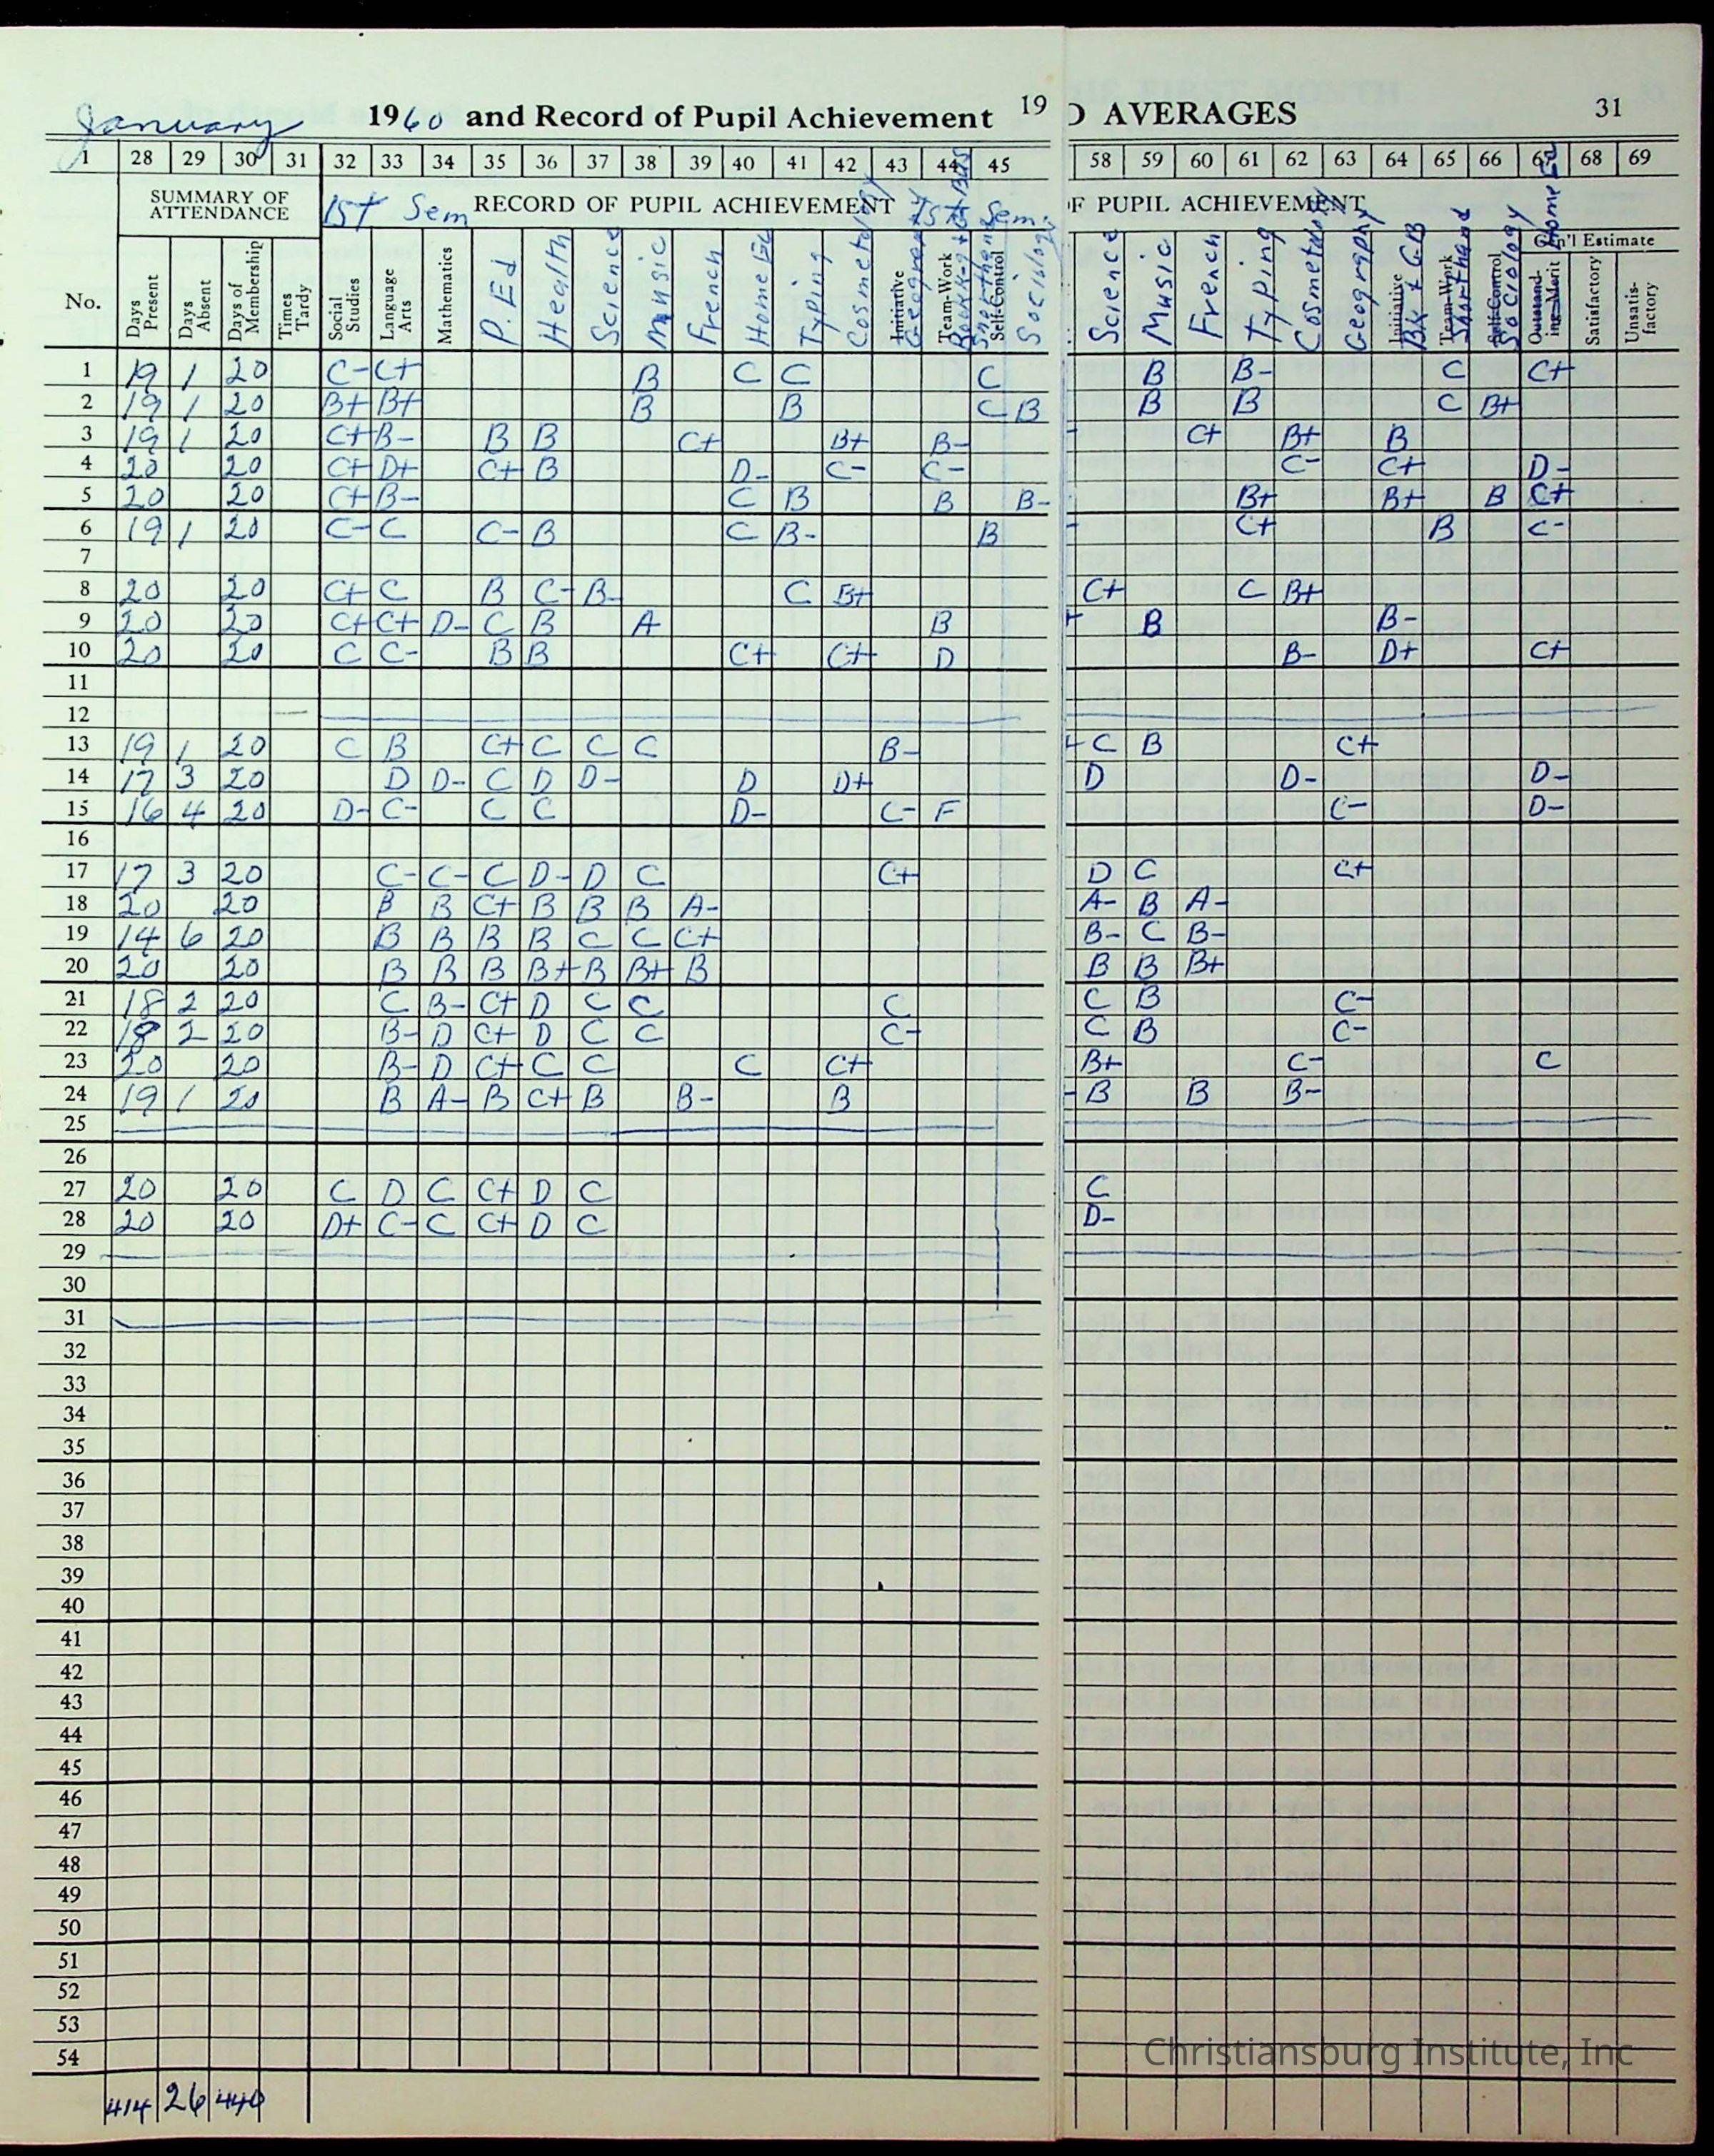 January 1960 and Record of Pupil Achievement 19 D AVERAGES 31
1 28 29 30 31 32 33 34 35 36 37 38 39 40 41 42 43 44 45 58 59 60 61 62 63 64 65 66 67 68 69
SUMMARY OF ATTENDANCE 1st Sem RECORD OF PUPIL ACHIEVEMENT 1st Sem. F PUPIL ACHIEVEMENT
Gen'l Estimate
No. Days Present Days Absent Days of Membership Times Tardy Social Studies Language Arts Mathematics P. Ed Health Science Music French Home Ec Typing Cosmetology Initiative Geography Team-Work Self-Control Shorthand Sociology Science Music French Typing Cosmetology Geography Initiative BK & GB Team-Work Shorthand Self-Control Sociology Outstanding Merit Home Ec Satisfactory Unsatisfactory
1 19 1 20 C- C+ B C C C B B- C C+
2 19 1 20 B+ B+ B B C B B B C B+
3 19 1 20 C+ B- B B C+ B+ B- - C+ B+ B
4 20 20 C+ D+ C+ B D- C- C- C- C+ D-
5 20 20 C+ B- C B B B- B+ B+ B C+
6 19 1 20 C- C C- B C B- B - C+ B C-
7
8 20 20 C+ C B C- B- C B+ C+ C B+
9 20 20 C+ C+ D- C B A B + B B-
10 20 20 C C- B B C+ C+ D B- D+ C+
11
12
13 19 1 20 C B C+ C C C B- + C B C+
14 17 3 20 D D- C D D- D D+ D D- D-
15 16 4 20 D- C- C C D- C- F C- D-
16
17 17 3 20 C- C- C D- D C C+ D C C+
18 20 20 B B C+ B B B A- A- B A-
19 14 6 20 B B B B C C C+ B- C B-
20 20 20 B B B B+ B B+ B B B B+
21 18 2 20 C B- C+ D C C C C B C-
22 18 2 20 B- D C+ D C C C- C B C-
23 20 20 B- D C+ C C C C+ B+ C- C
24 19 1 20 B A- B C+ B B- B - B B B-
25
26
27 20 20 C D C C+ D C C
28 20 20 D+ C- C C+ D C D-
29
30
31
32
33
34
35
36
37
38
39
40
41
42
43
44
45
46
47
48
49
50
51
52
53
54
414 26 440
Christiansburg Institute, Inc